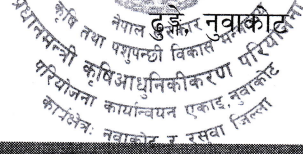 नेपाल सरकार
कृषि तथा पशुपन्छी विकास
ढुङ्गे, नुवाकोट
प्रधानमन्त्री कृषि आधुनिकीकरण परियोजना
परियोजना कार्यान्वयन एकाइ, नुवाकोट
कार्यक्षेत्र: नुवाकोट र रसुवा जिल्ला